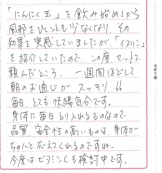 「にんにく玉」を飲み始めてから
風邪をひくことも少なくなり、その
効果を実感していましたが「イヌリン」
を紹介していたので、この度セットで
頼んだところ、一週間ほどして
朝のお通じが スッキリ!!
毎日、とても快腸気分です。
身体に毎日とり入れるものなので
品質、安全性の高いものは、身体が
ちゃんと応えてくれるのですね。
今度はビタミンCも検討中です。